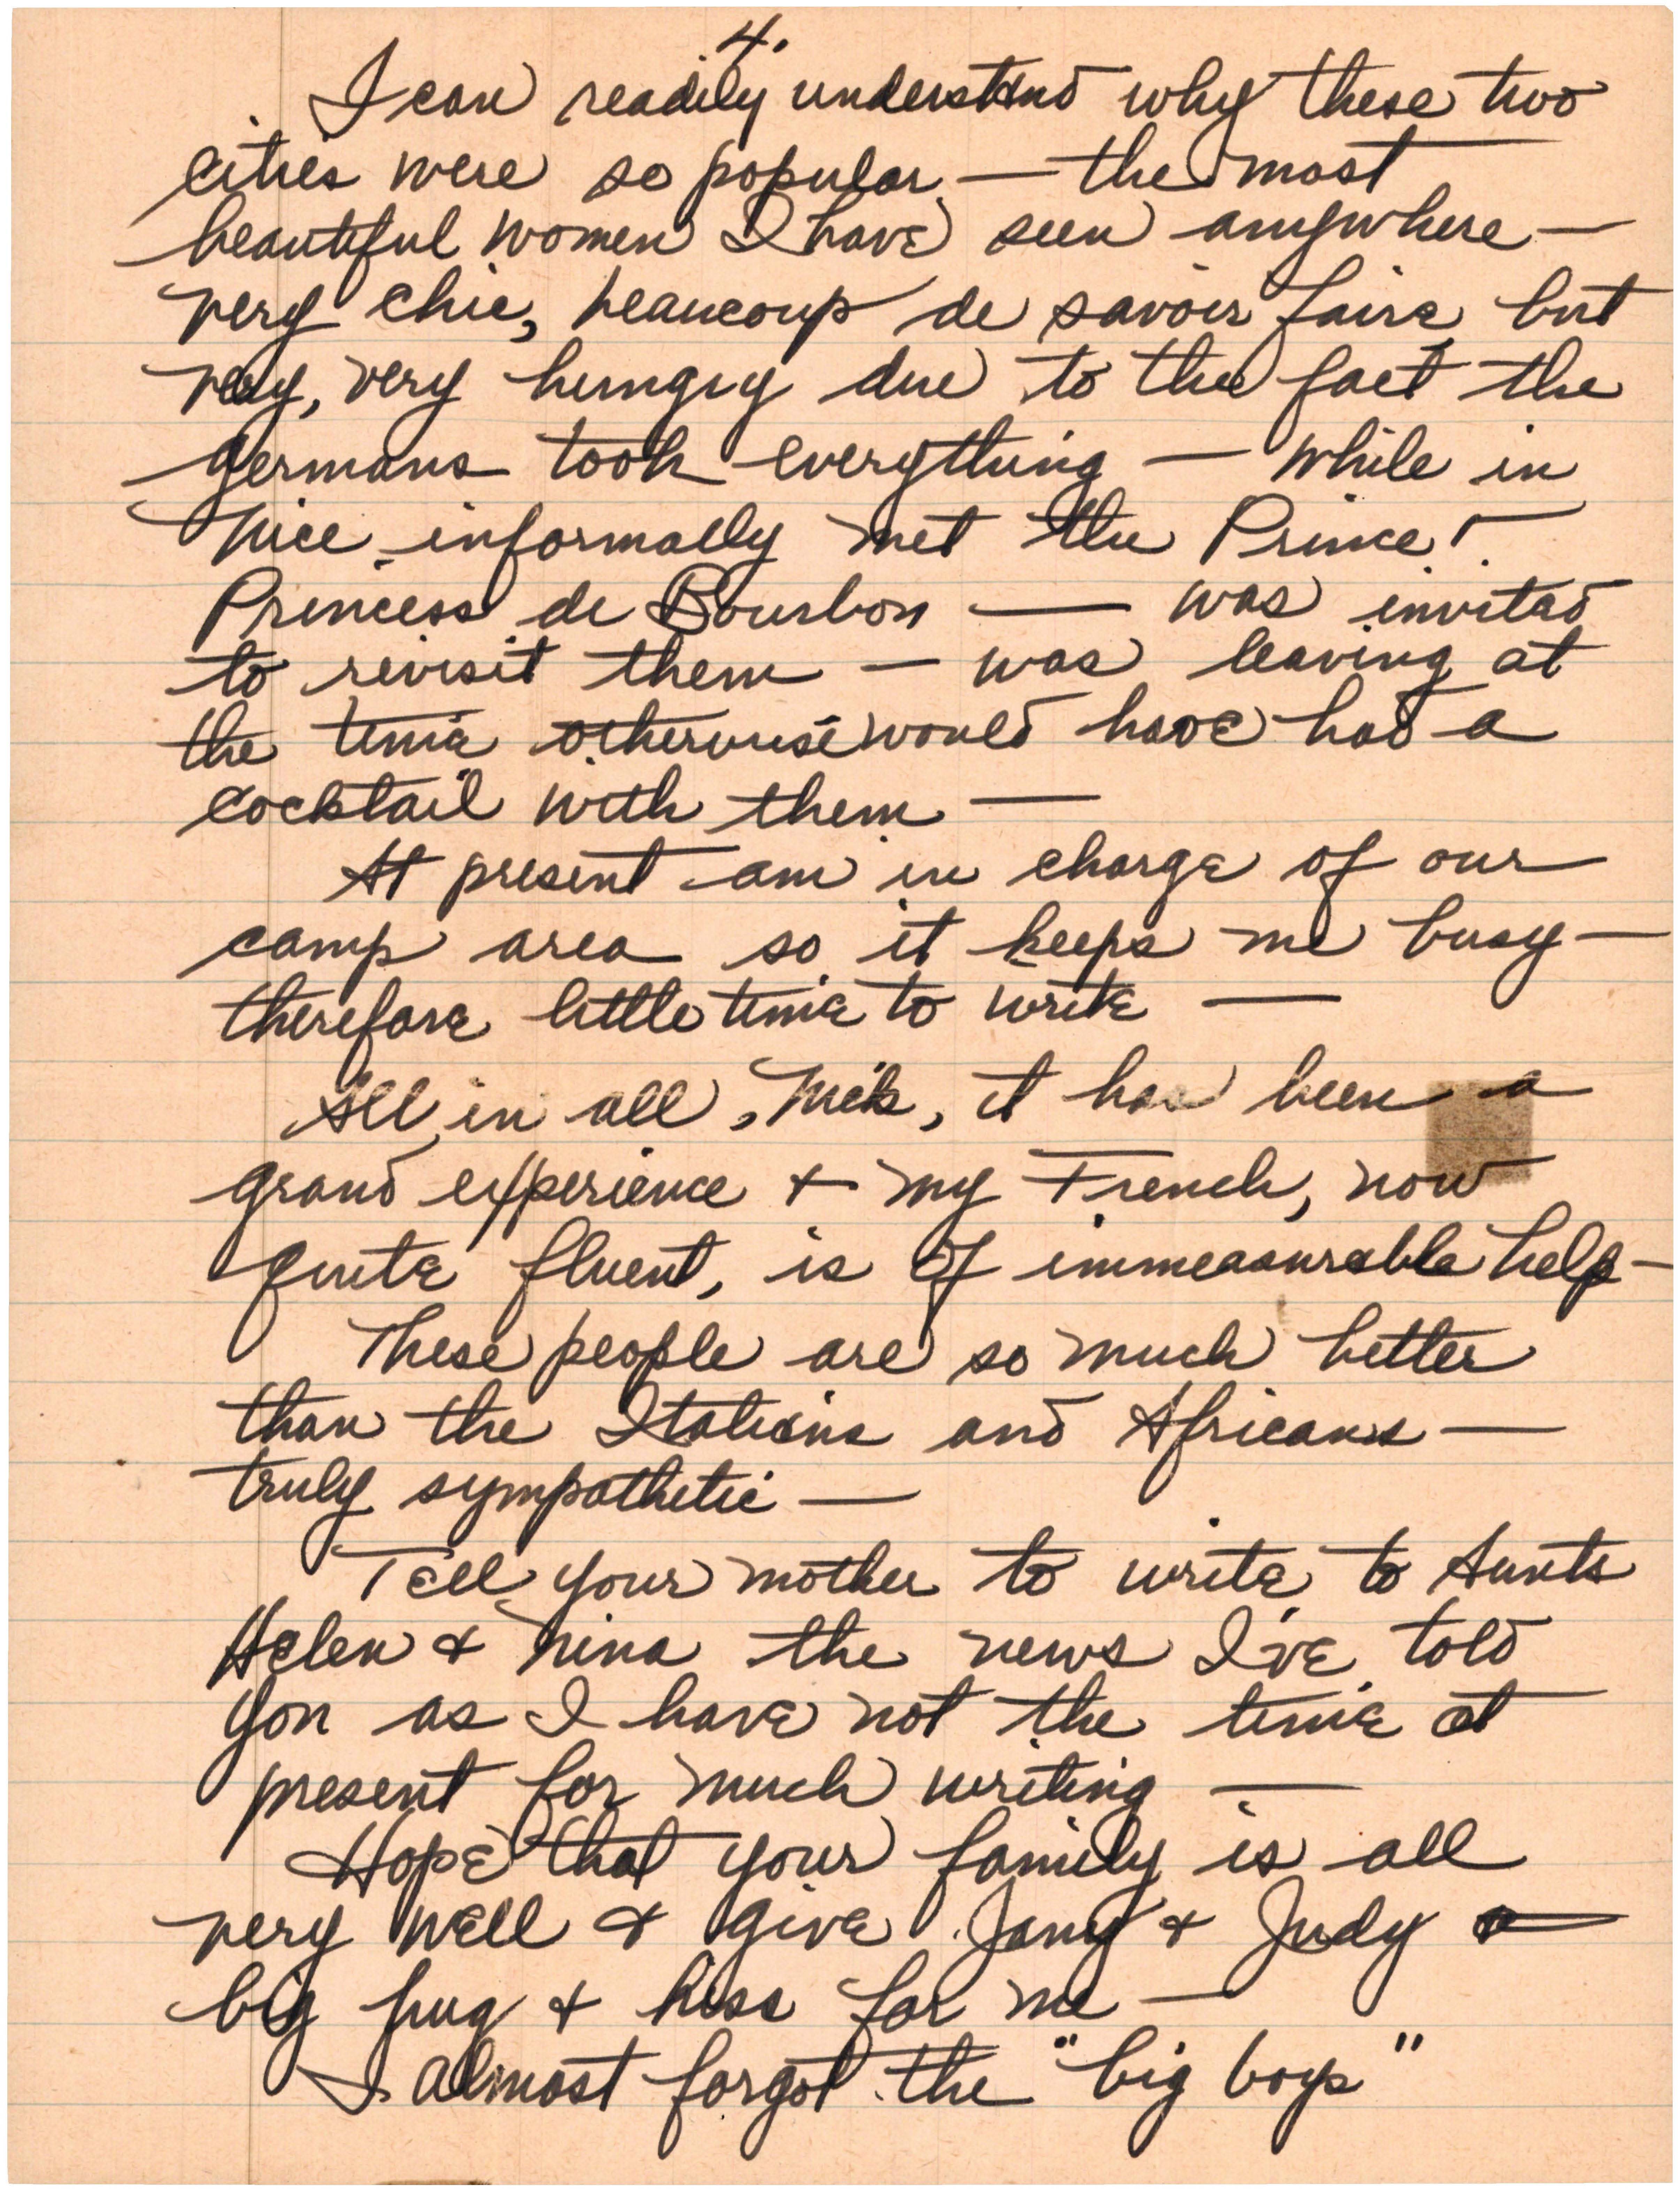 4.
I can readily understand why these two
cities were so popular — the most
beautiful women I have seen anywhere —
very chic, beaucoup de savoir faire but
very, very hungry due to the fact the
germans took everything — While in
Nice informally met the Prince &
Princess de Bourbon — was invited
to revisit them — was leaving at
the time otherwise would have had a
cocktail with them —
At present am in charge of our
camp area so it keeps me busy —
therefore little time to write —
All in all, Nick, it has been a
grand experience + my French, now
quite fluent, is of immeasurable help —
These people are so much better
than the Italians and Africans —
truly sympathetic —
Tell your mother to write to Aunts
Helen + Nina the news I've told
you as I have not the time at
present for much writing —
Hope that your family is all
very well + give Jany + Judy a
big hug + kiss for me —
I almost forgot the "big boys"